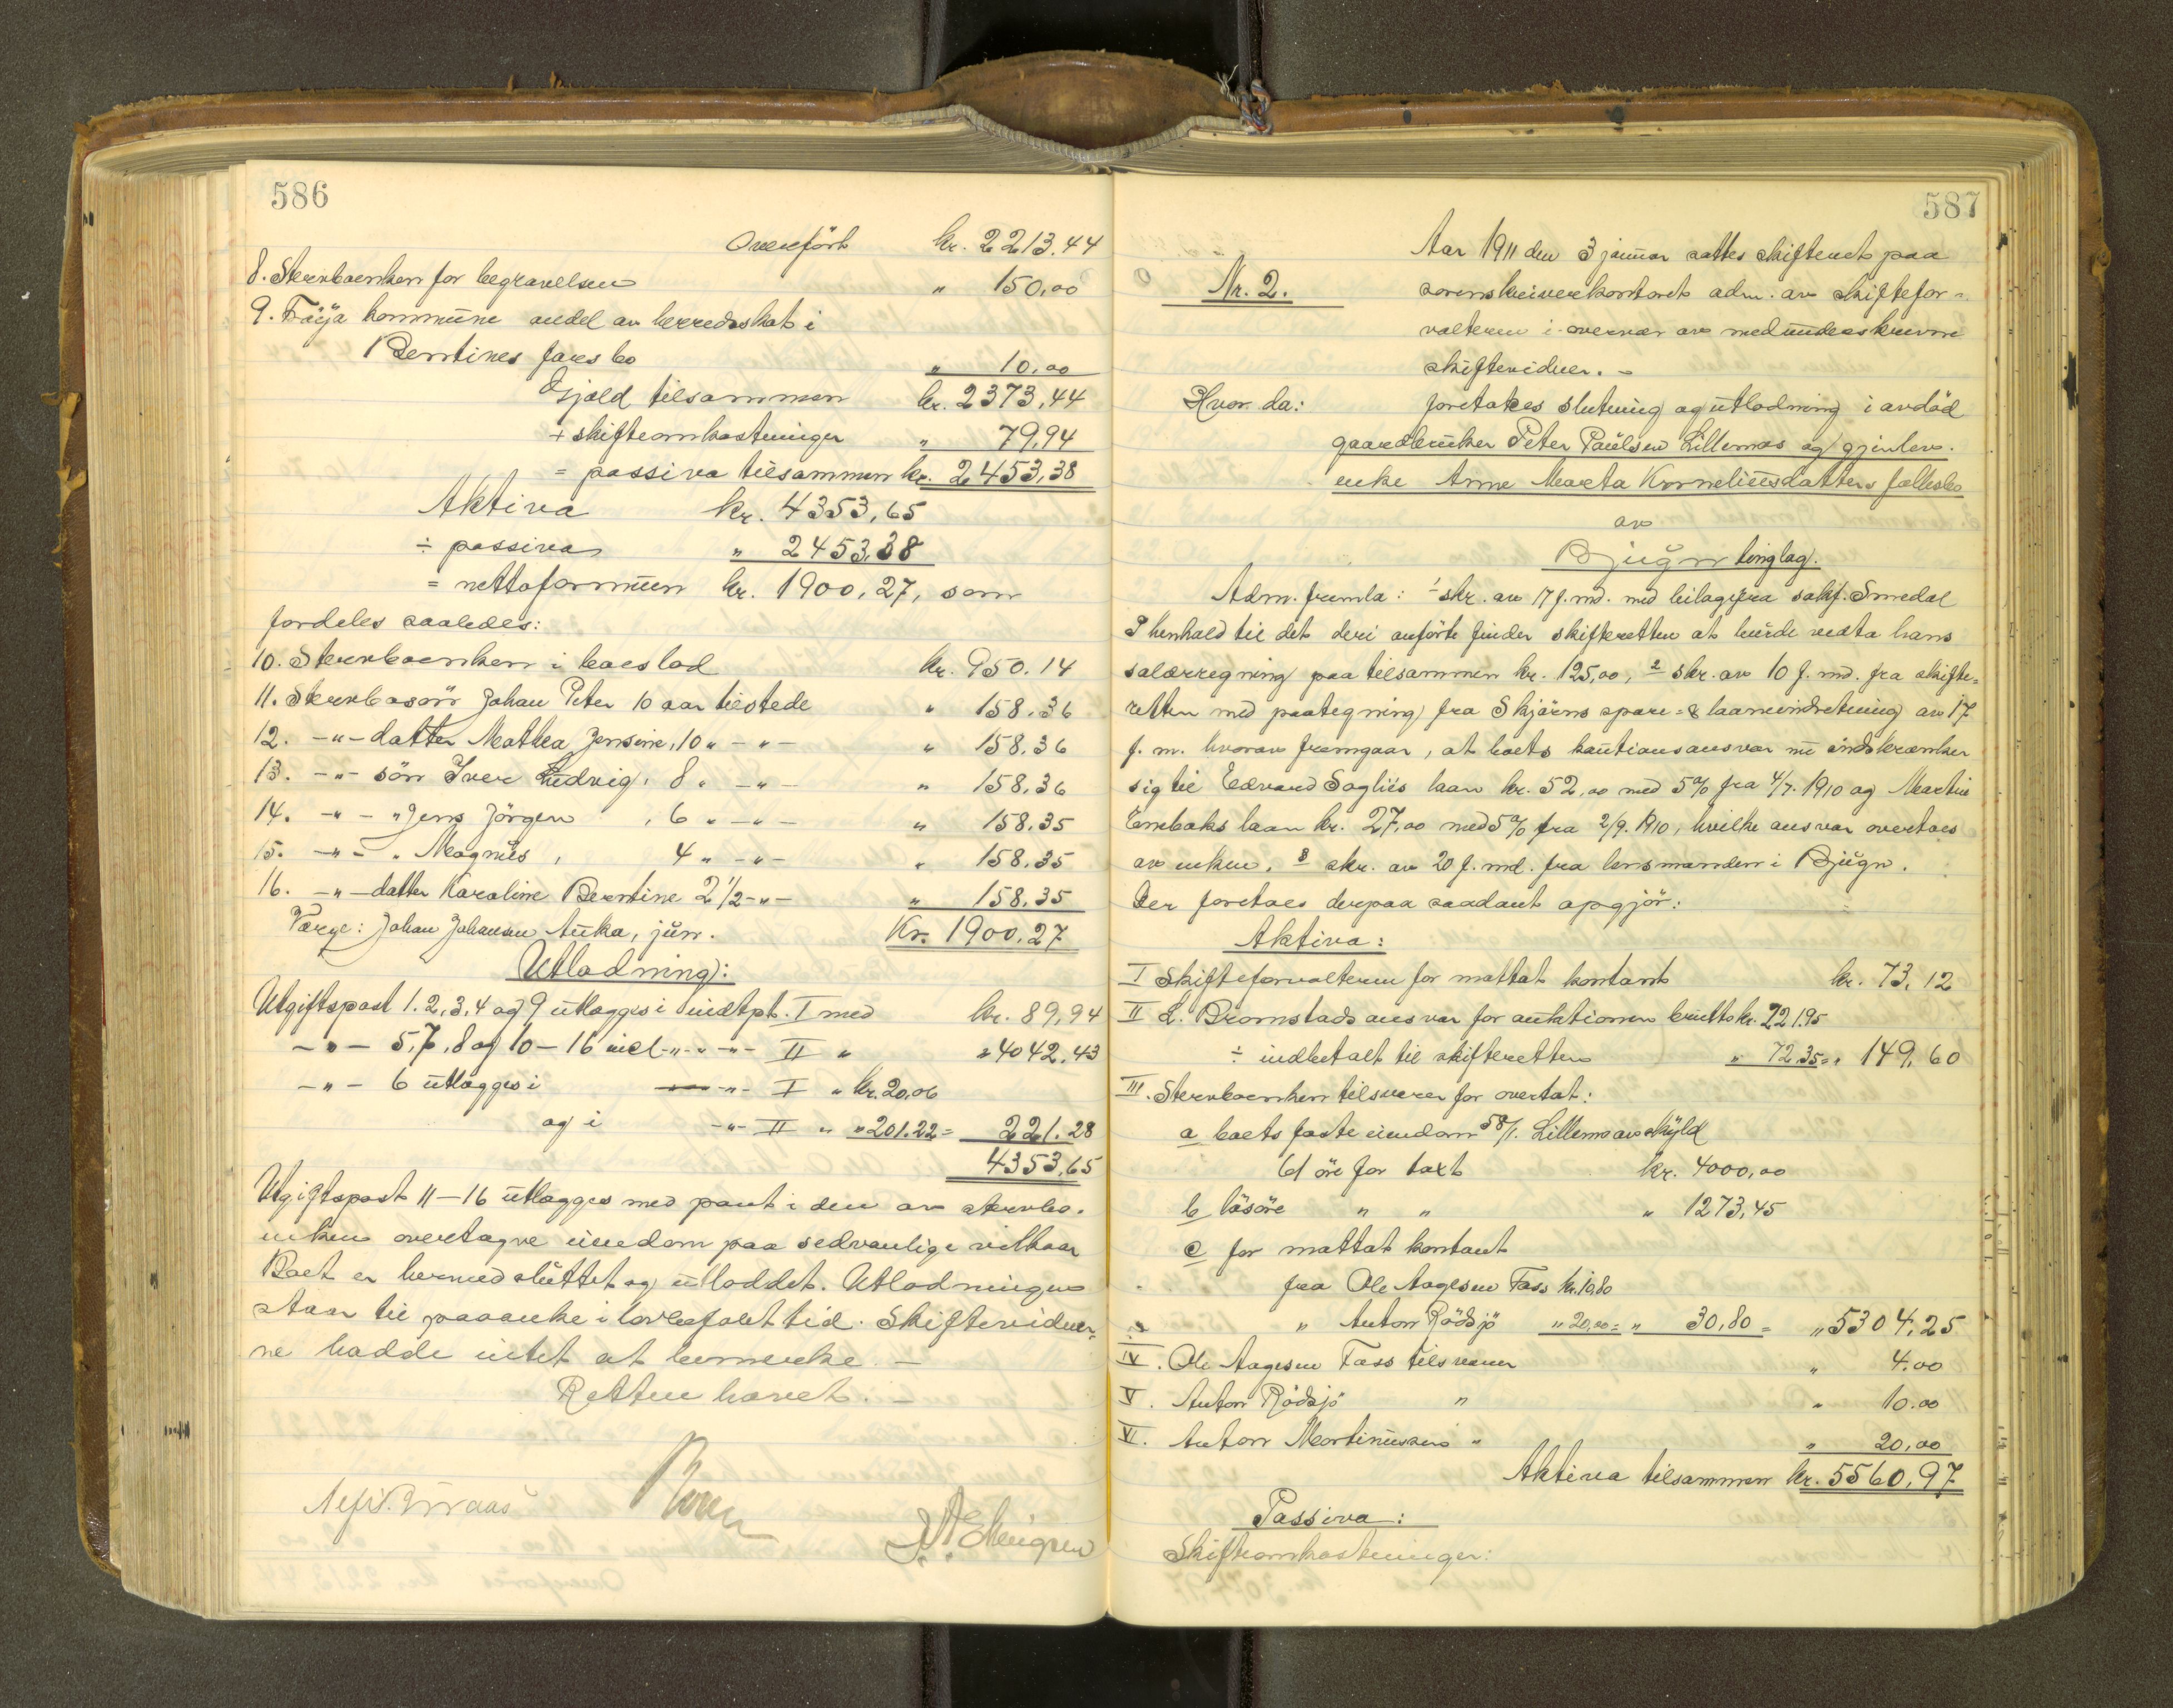 586
Overført kr. 2213.44
8. Stervboenken for begravelsen " 150,00
9. Frøya kommune andel av herredsskat i
Berntines farsbo " 10,00
Gjæld tilsammen kr. 2373,44
+ skifteomkostninger " 79,94
= passiva tilsammen kr. 2453,38
Aktiva kr. 4353,65
÷ passiva " 2453,38
= nettoformuen kr. 1900,27, som
fordeles saaledes:
10. Stervboenken i boeslod kr. 950.14
11. Stervbosøn Johan Peter 10 aar tilstede " 158,36
12. -"- datter Mathea Jensine, 10 " -"- " 158,36
13. -"- søn Iver Ludvig, 8 " -"- " 158,36
14. -"- " Jens Jörgen, 6 " -"- " 158,35
15. -"- " Magnus, 4 " -"- " 158,35
16. -"- datter Karoline Berntine 2 1/2 -"- " 158,35
Værge: Johan Johansen Auka, jun. Kr. 1900,27
Utlodning:
Utgiftspost 1.2,3,4 og 9 utlægges i indtpt. I med kr. 89,94
-"- 5,7,8 og 10-16 incl -"-"-"- II " " 4042,43
-"- 6 utlægges i -"- I " kr. 20,06
og i -"- II " " 201.22 = 221.28
4353,65
Utgiftspost 11-16 utlægges med pant i den av stervbo-
enken overtagne eiendom paa sedvanlige vilkaar
Boet er hermed sluttet og utloddet. Utlodningen
staar til paaanke i lovbefalt tid. Skiftevidner-
ne hadde intet at bemerke. -
Retten hævet. -
587
Nr. 2.
Aar 1911 den 3 januar sattes skifteret paa
sorenskriverkontoret adm. av skiftefor-
valteren i overvær av medunderskrevne
skiftevidner. -
Hvor da: foretokes slutning og utlodning i avdød
gaardbruker Peter Paulsen Lillemos og gjenlev.
enke Anne Marta Korneliusdatters fællesbo
av
Bjugn tinglag.
Adm. fremla: 1 skr. av 17 f.md. med bilag fra sakf. Smedal
I henhold til det deri anførte finder skifteretten at burde vedta hans
salærregning paa tilsammen kr. 125,00, 2 skr. av 10 f. md. fra skifte-
retten med paategning fra Skjørns spare- & laaneindretning av 17
f. m. hvorav fremgaar, at boets kautionsansvar nu indskrænker
sig til Edvard Sagliis laan kr. 52,00 med 5% fra 4/7. 1910 og Martin
Ernebaks laan kr. 27,00 med 5% fra 2/9. 1910, hvilke ansvar overtaes
av enken. 3 skr. av 20 f. md. fra lensmanden i Bjugn.
Der foretaes derpaa saadant opgjør:
Aktiva:
I Skifteforvalteren for mottat kontant kr. 73,12
II L. Bromstads ansvar for auktionen brutto kr. 221.95
÷ indbetalt til skifteretten " 72.35 = " 149,60
III. Stervboenken tilsvarer for overtat:
a boets faste eiendom 58/1. Lillemo av skyld
61 øre for taxt kr. 4000,00
b løsøre " " " 1273,45
c for mottat kontant
fra Ole Aagesen Fass kr. 10,80
" Anton Rødsjø " 20,00 = " 30,80 = " 5304,25
IV. Ole Aagesen Fass tilsvarer " 4.00
V. Anton Rødsjø " " 10.00
VI. Anton Martinussen " " 20,00
Aktiva tilsammen kr. 5560,97
Passiva:
Skifteomkostninger: